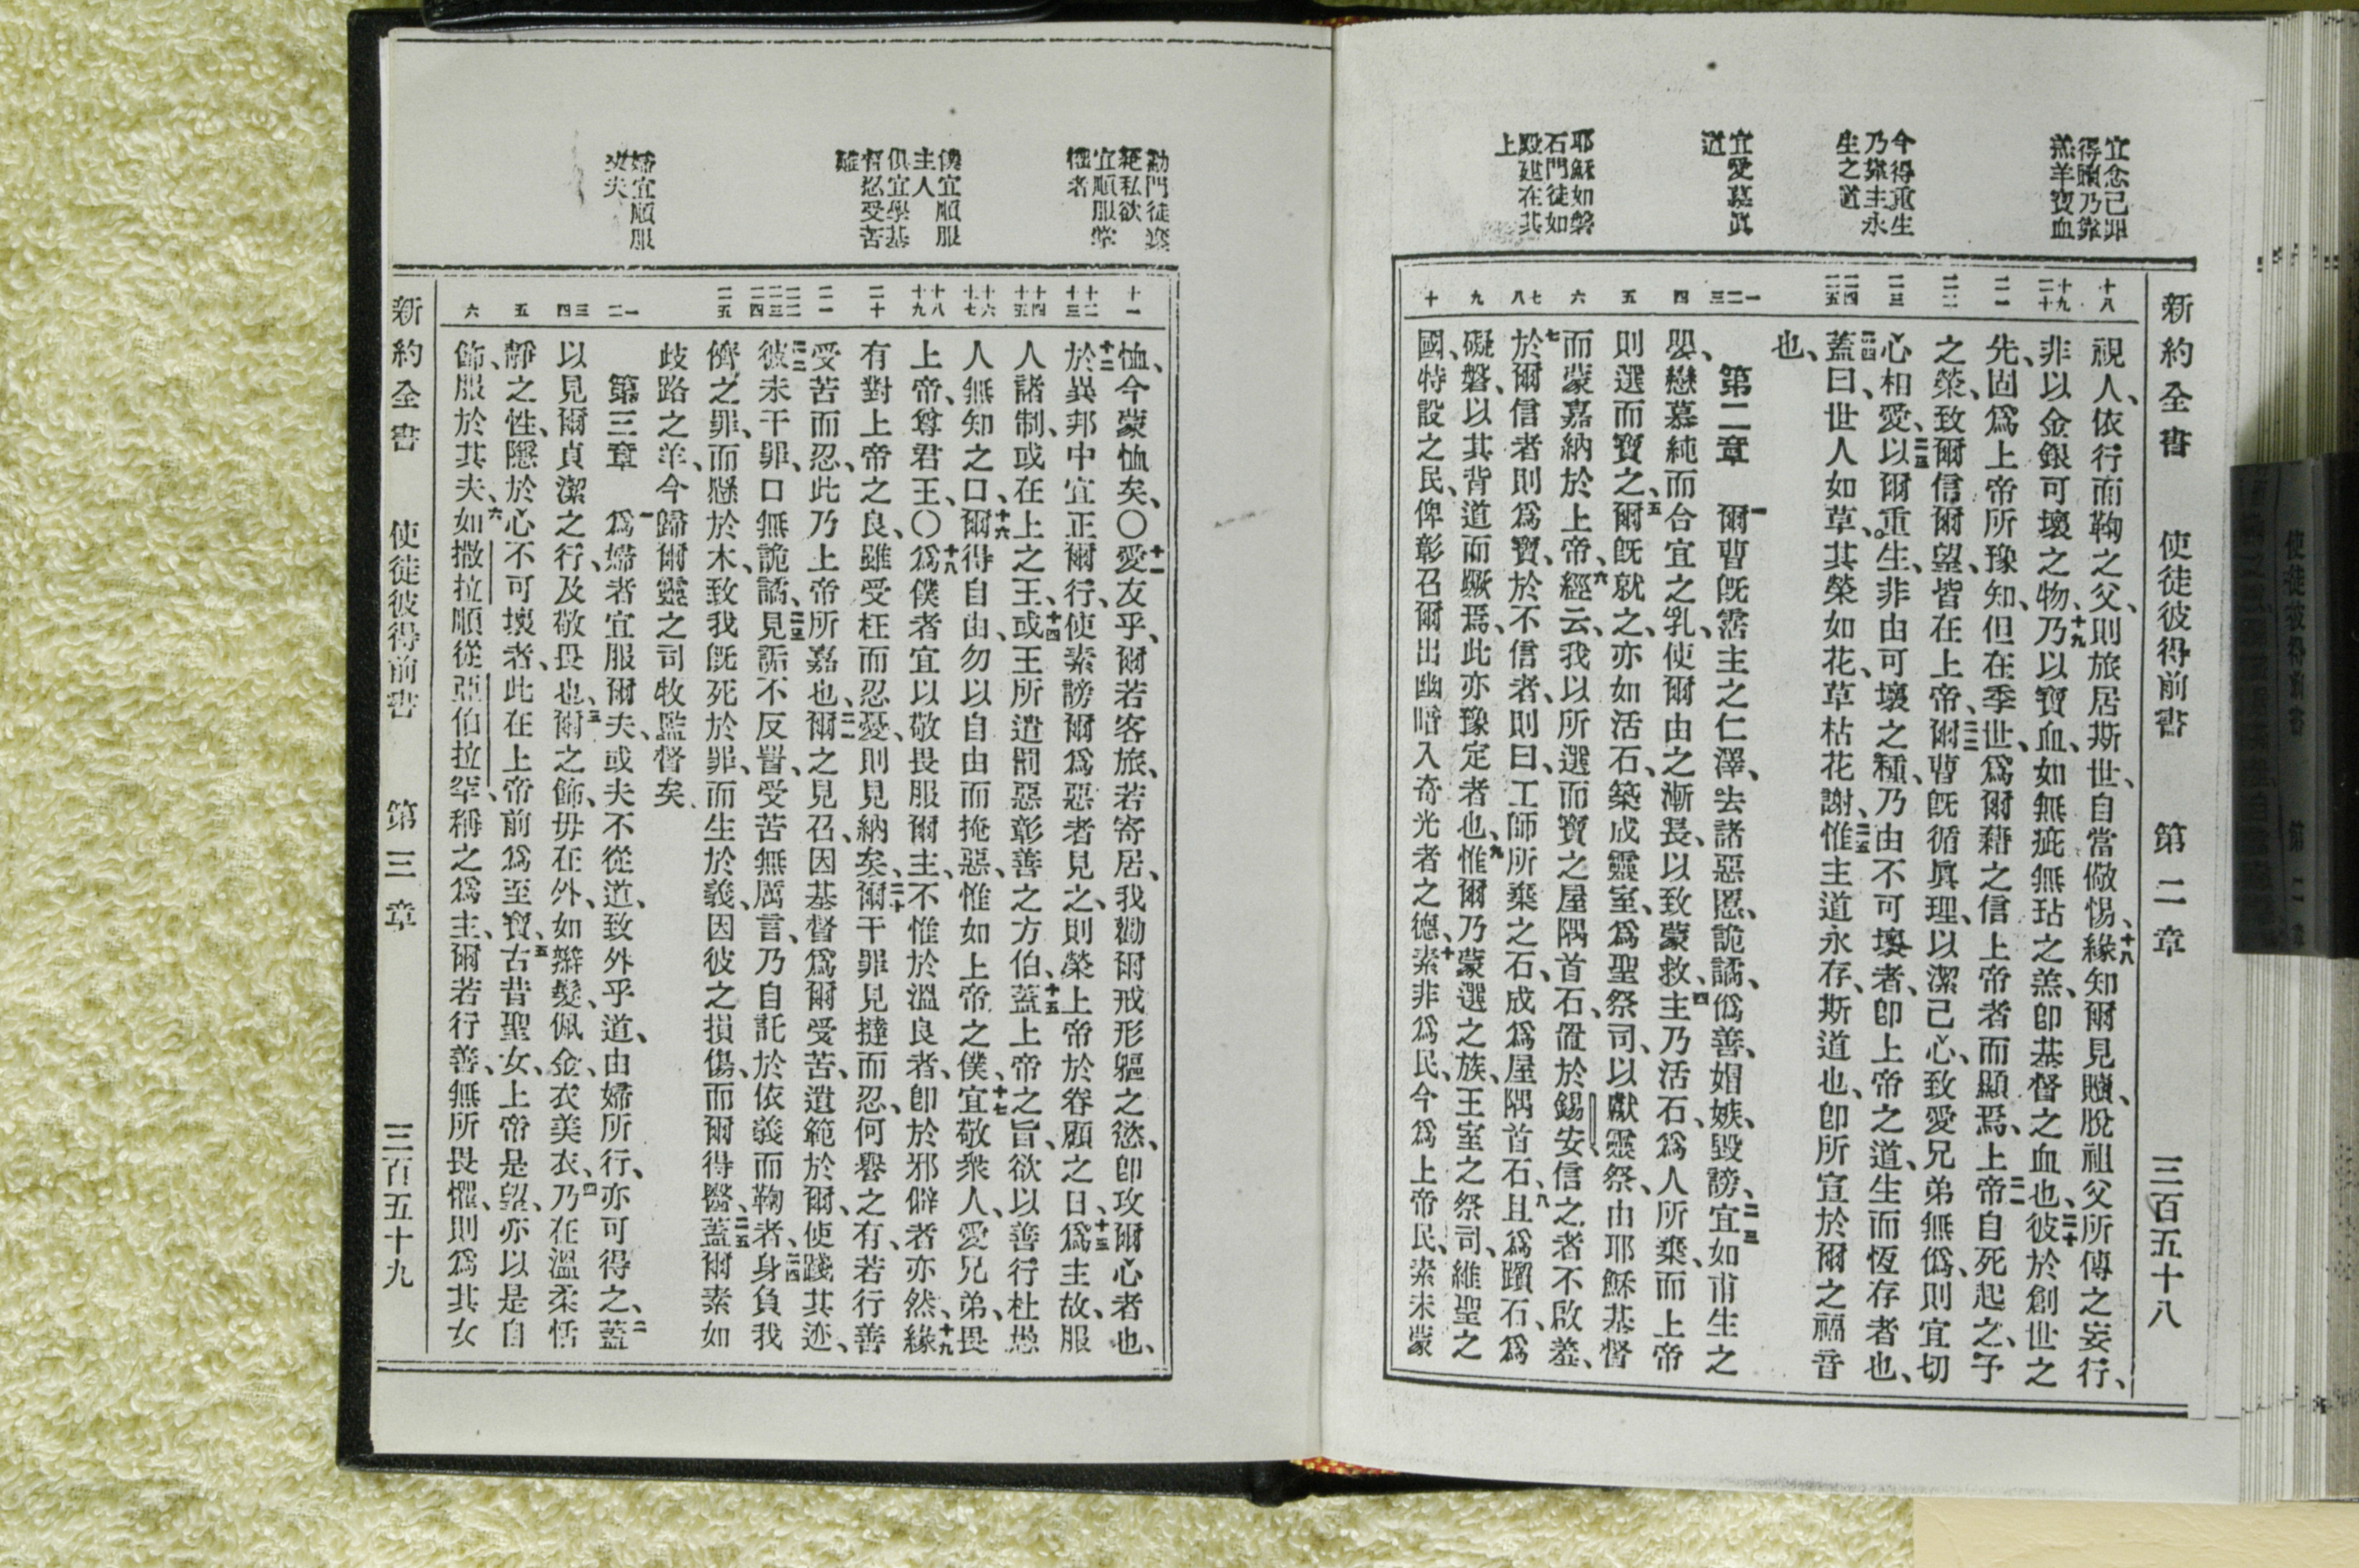 新約全書 使徒彼得前書 第二章 三百五十八
宜念己罪
得贖乃靠
羔羊寶血
今得重生
乃靠主永
生之道
宜愛慕眞
道
耶穌如磐
石門徒如
殿建在其
上
十八
十九
二十
二一
二二
二三
二四
二五
一
二
三
四
五
六
七
八
九
十
視人、依行而鞫之父、則旅居斯世、自當儆惕、十八緣知爾見贖、脫祖父所傳之妄行、
非以金銀可壞之物、十九乃以寶血、如無疵無玷之羔、卽基督之血也、二十彼於創世之
先、固爲上帝所豫知、但在季世、爲爾藉之信上帝者而顯焉、二一上帝自死起之、予
之榮、致爾信爾望、皆在上帝、二二爾曹旣循眞理、以潔己心、致愛兄弟無僞、則宜切
心相愛、二三以爾重生、非由可壞之種、乃由不可壞者、卽上帝之道、生而恆存者也、
二四蓋曰、世人如草、其榮如花、草枯花謝、二五惟主道永存、斯道也、卽所宣於爾之福音
也、
第二章 一爾曹旣霑主之仁澤、去諸惡慝、詭譎、僞善、媢嫉、毀謗、二三宜如甫生之
嬰、戀慕純而合宜之乳、使爾由之漸長、以致蒙救、四主乃活石、爲人所棄、而上帝
則選而寶之、五爾旣就之、亦如活石、築成靈室、爲聖祭司、以獻靈祭、由耶穌基督
而蒙嘉納於上帝、六經云、我以所選而寶之屋隅首石、置於錫安、信之者不啟羞、
七於爾信者則爲寶、於不信者、則曰、工師所棄之石、成爲屋隅首石、八且爲躓石、爲
礙磐、以其背道而蹶焉、此亦豫定者也、九惟爾乃蒙選之族、王室之祭司、維聖之
國、特設之民、俾彰召爾出幽暗入奇光者之德、十素非爲民、今爲上帝民、素未蒙
勸門徒棄
絕私欲
宜順服掌
權者
僕宜順服
主人
俱宜學基
督忍受苦
難
婦宜順服
丈夫
十一
十二
十三
十四
十五
十六
十七
十八
十九
二十
二一
二二
二三
二四
二五
一
二
三
四
五
六
恤、今蒙恤矣、〇十一愛友乎、爾若客旅、若寄居、我勸爾戒形軀之慾、卽攻爾心者也、
十二於異邦中宜正爾行、使素謗爾爲惡者見之、則榮上帝於眷顧之日、十三爲主故、服
人諸制、或在上之王、十四或王所遣罰惡彰善之方伯、十五蓋上帝之旨、欲以善行杜愚
人無知之口、十六爾得自由、勿以自由而掩惡、惟如上帝之僕、十七宜敬衆人、愛兄弟、畏
上帝、尊君王、〇十八爲僕者宜以敬畏服爾主、不惟於溫良者、卽於邪僻者亦然、十九緣
有對上帝之良、雖受枉而忍憂、則見納矣、二十爾干罪見撻而忍、何譽之有、若行善
受苦而忍、此乃上帝所嘉也、二一爾之見召、因基督爲爾受苦、遺範於爾、使踐其迹、
二二彼未干罪、口無詭譎、二三見詬不反詈、受苦無厲言、乃自託於依義而鞫者、二四身負我
儕之罪、而懸於木、致我旣死於罪、而生於義、因彼之損傷、而爾得醫、二五蓋爾素如
歧路之羊、今歸爾靈之司牧監督矣、
第三章 一爲婦者宜服爾夫、或夫不從道、致外乎道、由婦所行、亦可得之、二蓋
以見爾貞潔之行、及敬畏也、三爾之飾、毋在外、如辮髮、佩金、衣美衣、四乃在溫柔恬
靜之性、隱於心不可壞者、此在上帝前爲至寶、五古昔聖女、上帝是望、亦以是自
飾、服於其夫、六如撒拉順從亞伯拉罕、稱之爲主、爾若行善、無所畏懼、則爲其女
新約全書 使徒彼得前書 第三章 三百五十九